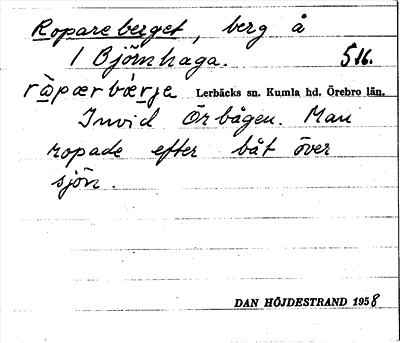 Ropareberget, berg å
1 Björnhaga. 516.
ràpærbǽrje Lerbäcks sn. Kumla hd. Örebro län.
Invid Örbågen. Man
ropade efter båt över
sjön.
DAN HÖJDESTRAND 1958